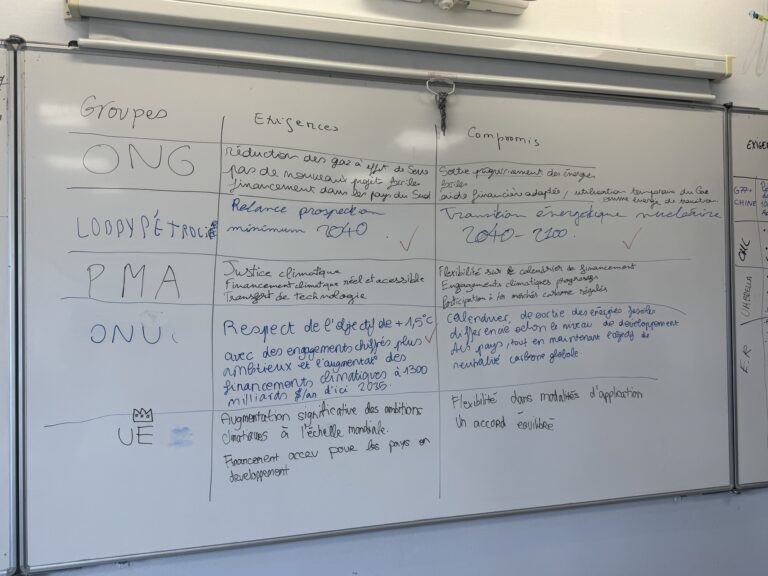 Groupes
Exigences
Compromis
ONG
réduction des gaz à effet de Serre
pas de nouveaux projets fossiles
financement dans les pays du Sud
Sortie progressivement des énergies
fossiles
aide financière adaptée, utilisation temporaire du Gaz
comme énergie de transition
LOBBYPÉTROLIER
Relance prospection
minimum 2040
Transition énergétique nucléaire
2040-2100.
PMA
Justice climatique
Financement climatique réel et accessible
Transfert de technologie
Flexibilité sur le calendrier de financement
Engagements climatiques progressifs
Participation à des marchés carbone régulés
ONU
Respect de l'objectif de +1,5°C
avec des engagements chiffrés plus
ambitieux et l'augmentat° des
financements climatiques à 1300
milliards $/an d'ici 2035.
calendrier de sortie des énergies fossiles
différencié selon le niveau de développement
des pays, tout en maintenant l'objectif de
neutralité carbone globale.
UE
Augmentation significative des ambitions
climatiques à l'échelle mondiale.
Financement accru pour les pays en
développement
Flexibilité dans modalités d'application
Un accord équilibré
EXIGE
G77+
CHINE
UMBRELLA